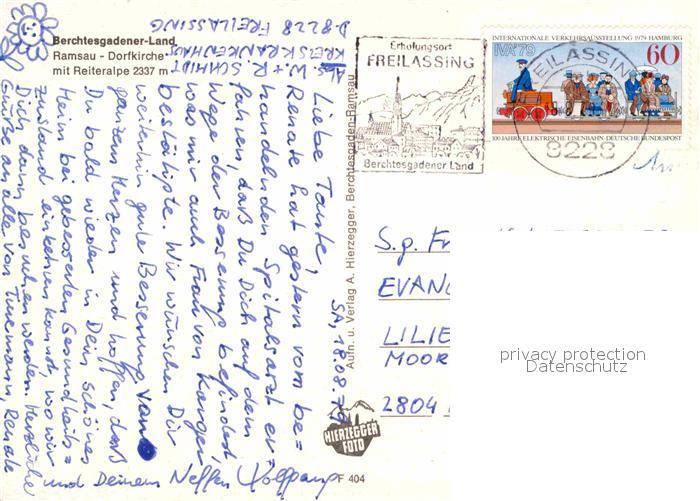 Berchtesgadener-Land
Ramsau - Dorfkirche
mit Reiteralpe 2337 m
Abs. W. + R. SCHMIDT
KREISKRANKENHAUS
D 8228 FREILASSING
Erholungsort
FREILASSING
Berchtesgadener Land
INTERNATIONALE VERKEHRSAUSSTELLUNG 1979 HAMBURG
IVA'79
60
100 JAHRE ELEKTRISCHE EISENBAHN · DEUTSCHE BUNDESPOST
FREILASSING
8228
SA, 18.08.79
Liebe Tante,
Renate hat gestern vom be=
handelnden Spitalsarzt er=
fahren, daß Du Dich auf dem
Wege der Besserung befindest,
was mir auch Frau von Langer
bestätigte. Wir wünschen Dir
weiterhin gute Besserung von
ganzem Herzen und hoffen, daß
Du bald wieder in Dein schönes
Heim bei gebessertem Gesundheits=
zustand einkehren kannst, wo wir
Dich dann besuchen werden. Herzliche
Grüße an alle von Renate
und Deinem Neffen Wolfgang
Aufn. u. Verlag A. Hierzegger, Berchtesgaden-Ramsau
HIERZEGGER
FOTO
F 404
S.g. Fr
EVAN
LILIE
MOOR
2804
privacy protection
Datenschutz